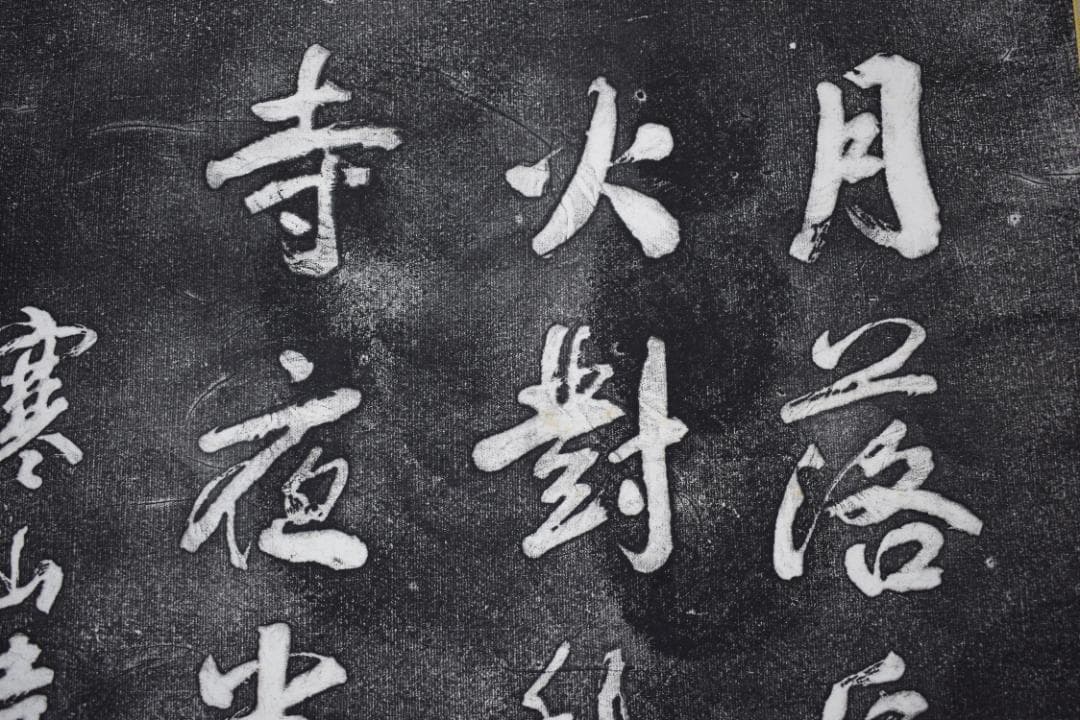 月落
火對
寺夜半
寒山